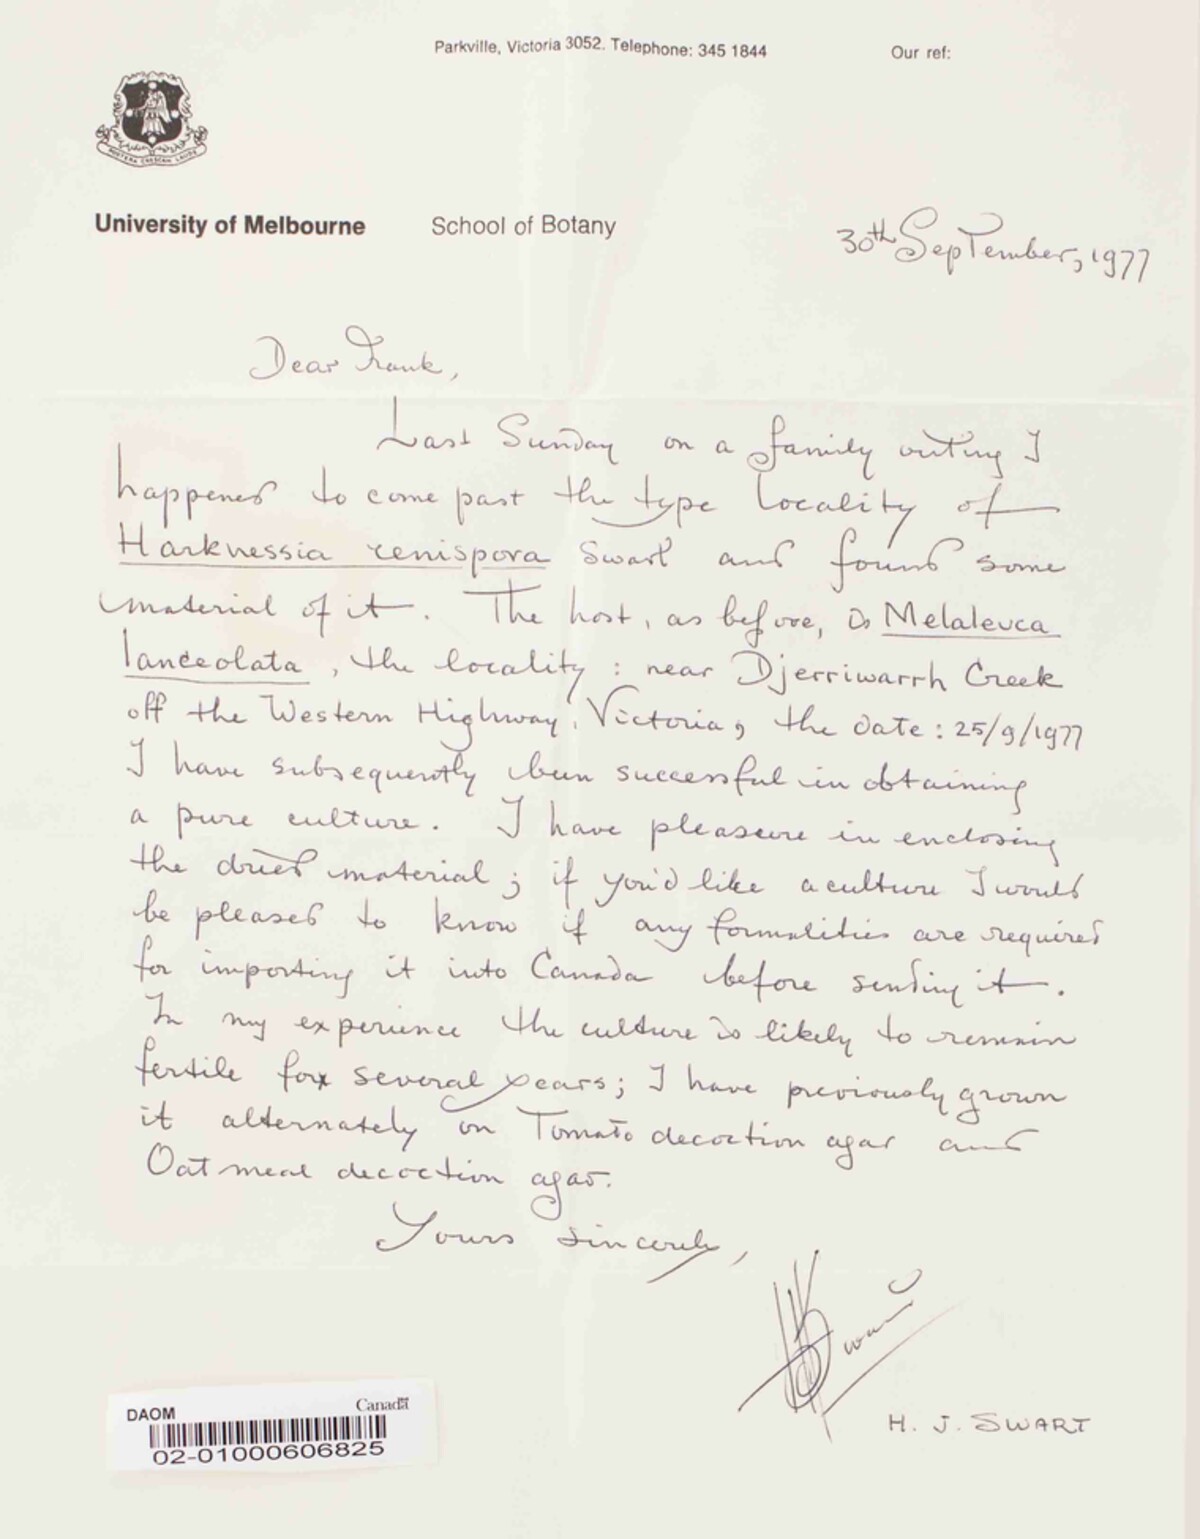 Parkville, Victoria 3052. Telephone: 345 1844
Our ref:
POSTERA CRESCAM LAUDE
University of Melbourne
School of Botany
30th September, 1977
Dear Frank,
Last Sunday on a family outing I
happened to come past the type locality of
Harknessia renispora Swart and found some
material of it. The host, as before, is Melaleuca
lanceolata, the locality: near Djerriwarrh Creek
off the Western Highway, Victoria, the date: 25/9/1977
I have subsequently been successful in obtaining
a pure culture. I have pleasure in enclosing
the dried material; if you'd like a culture I would
be pleased to know if any formalities are required
for importing it into Canada before sending it.
In my experience the culture is likely to remain
fertile for several years; I have previously grown
it alternately on Tomato decoction agar and
Oatmeal decoction agar.
Yours sincerely,
HJSwart
H. J. SWART
DAOM
Canada
02-01000606825